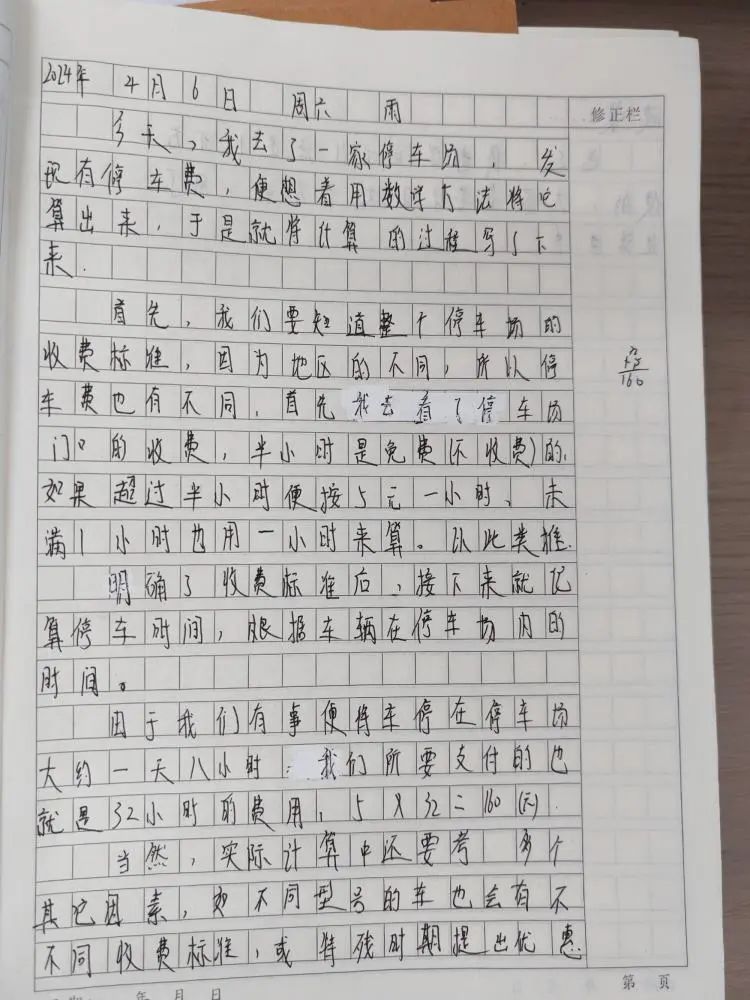 2024年 4月6日 周六 雨
修正栏
今天，我去了一家停车场，发
现有停车费，便想着用数学方法将它
算出来，于是就将计算的过程写了下
来.
首先，我们要知道整个停车场的
收费标准，因为地区的不同，所以停
车费也有不同.首先我去看了停车场
门口的收费，半小时是免费(不收费)的.
如果超过半小时便按5元一小时、未
满1小时也用一小时来算。以此类推.
明确了收费标准后，接下来就
算停车时间，根据车辆在停车场内的
时间。
由于我们有事便将车停在停车场
大约一天八小时 我们所要支付的也
就是32小时的费用，5×32=160(元).
当然，实际计算中还要考 多个
其它因素，如不同型号的车也会有不
不同收费标准，或特残时期提出优惠
160
年 月 日
第 页